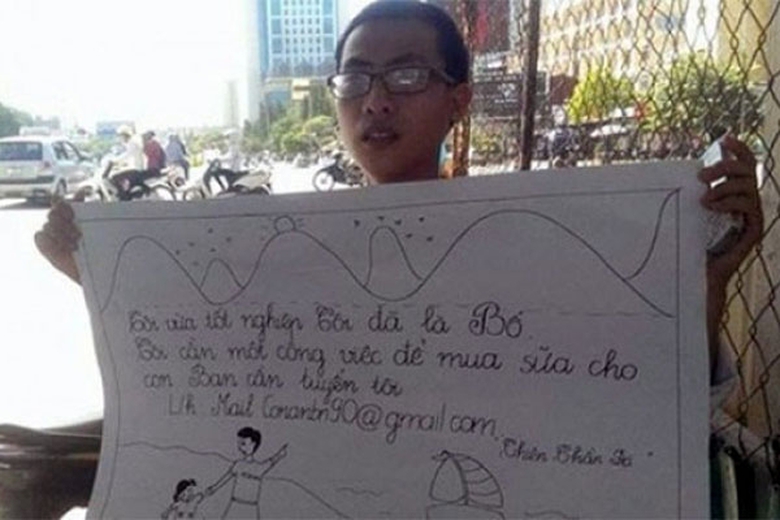 Tôi vừa tốt nghiệp Tôi đã là Bố.
Tôi cần một công việc để mua sữa cho
con Bạn cần tuyển tôi
L/h Mail Conantn90@gmail.com
"Thiên Thần